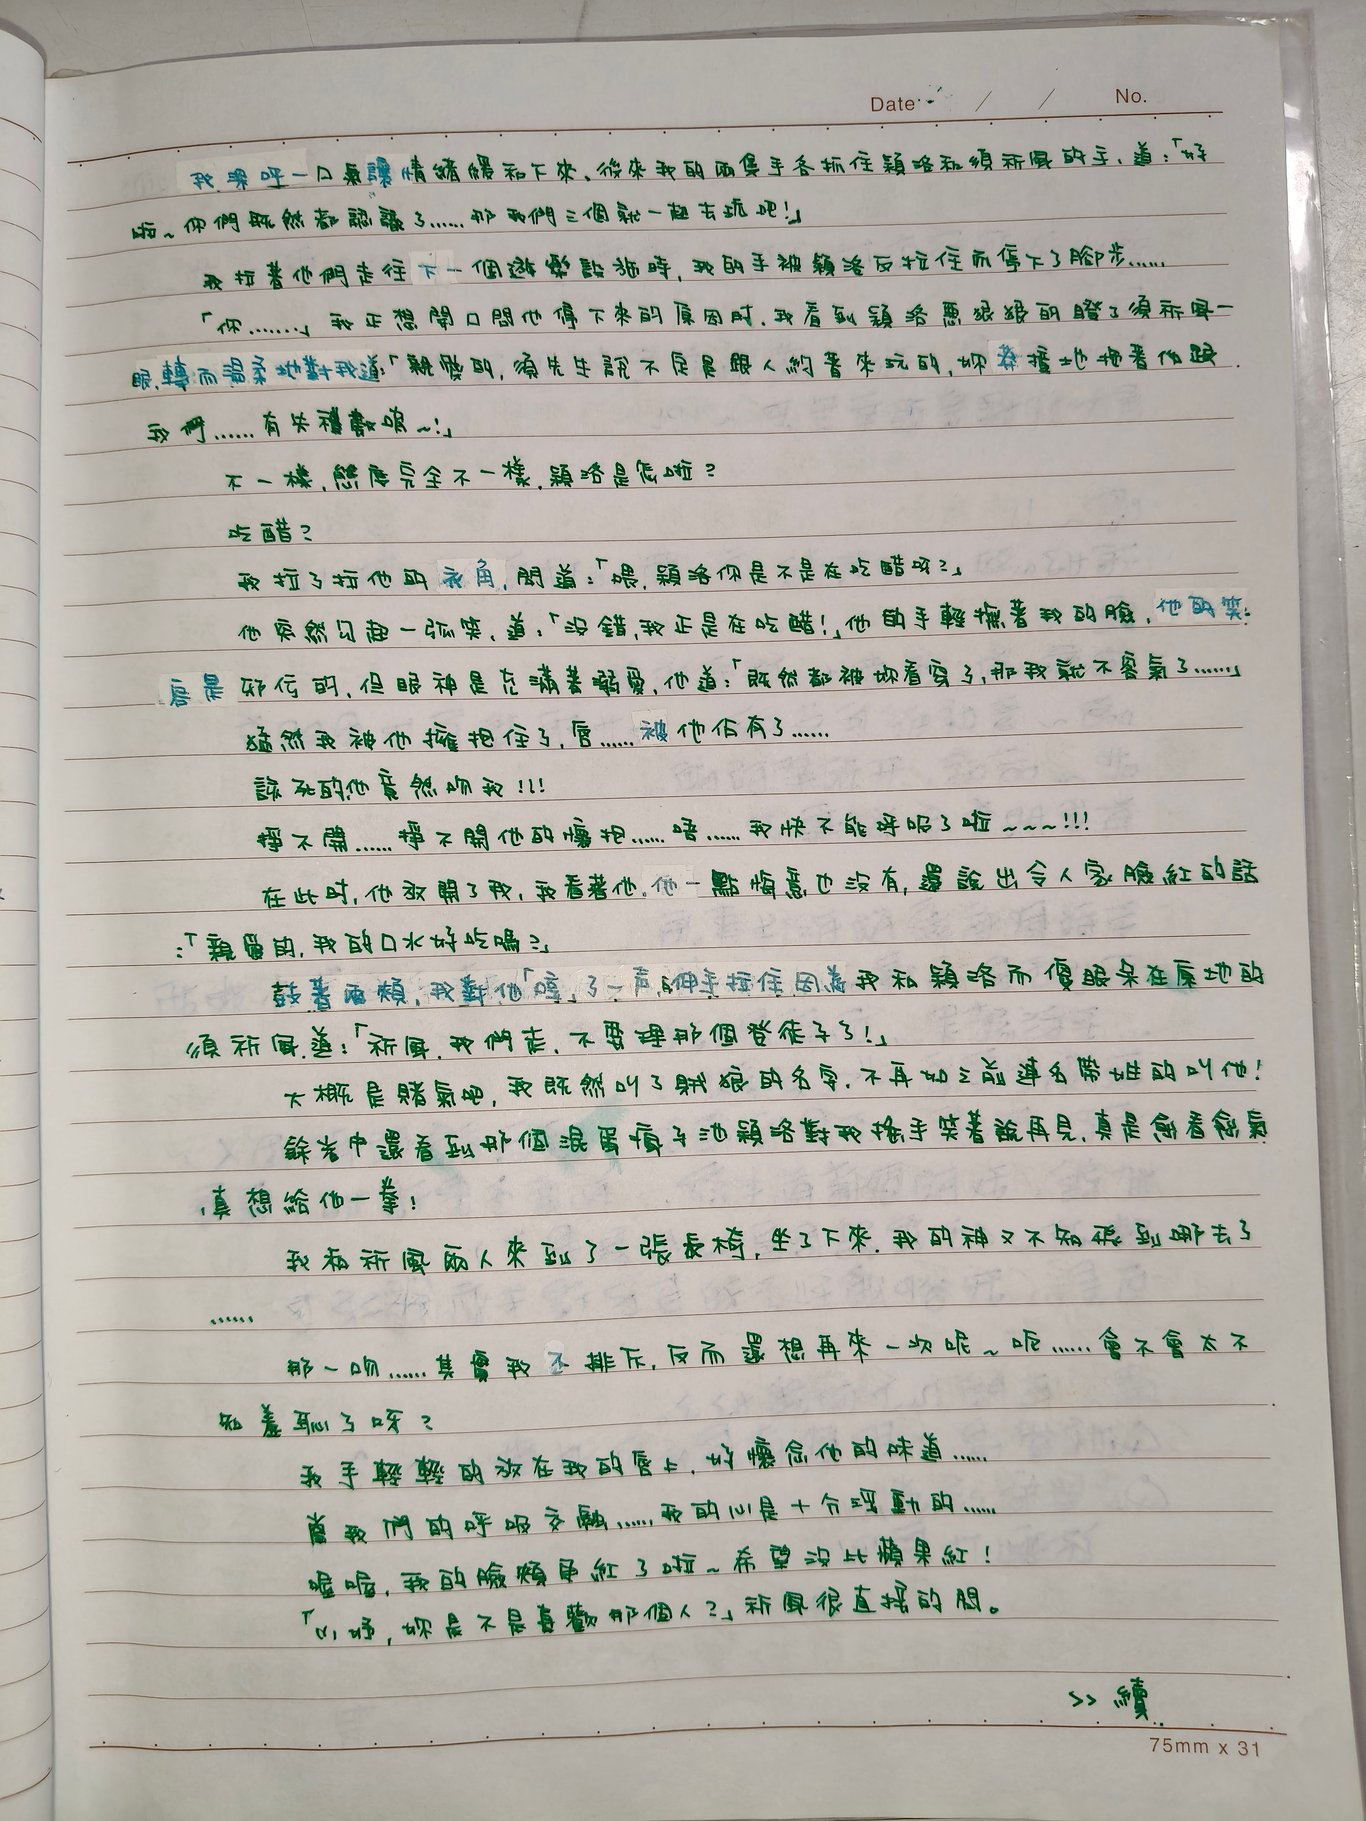 Date / / No.
我深呼一口氣讓情緒緩和下來。後來我的兩隻手各抓住穎洛和須祈風的手，道：「好
啦~你們既然都認識了……那我們三個就一起去玩吧!」
我拉著他們走往下一個遊樂設施時，我的手被穎洛反拉住而停下了腳步……
「你………」我正想開口問他停下來的原因時，我看到穎洛惡狠狠的瞪了須祈風一
眼，轉而溫柔地對我道:「親愛的，須先生說不定是跟人約著來玩的，妳莽撞地拖著他跟
我們……有失禮數唷~!」
不一樣，態度完全不一樣，穎洛是怎啦?
吃醋?
我拉了拉他的衣角，問道:「喂，穎洛你是不是在吃醋呀?」
他突然勾起一弧笑，道:「沒錯，我正是在吃醋!」他的手輕撫著我的臉，他的笑
容是邪佞的，但眼神是充滿著溺愛，他道:「既然都被妳看穿了，那我就不客氣了……」
猛然我被他擁抱住了，唇……被他佔有了……
該死的他竟然吻我!!!
掙不開……掙不開他的懷抱……唔……我快不能呼吸了啦~~~!!!
在此時，他放開了我，我看著他，他一點悔意也沒有，還說出令人家臉紅的話
:「親愛的，我的口水好吃嗎?」
鼓著兩頰，我對他「哼」了一聲，伸手拉住因為我和穎洛而傻眼呆在原地的
須祈風，道:「祈風，我們走，不要理那個登徒子了!」
大概是賭氣吧，我既然叫了賊狼的名字，不再如之前連名帶姓的叫他!
餘光中還看到那個混蛋瘋子池穎洛對我搖手笑著說再見，真是愈看愈氣
，真想給他一拳!
我和祈風兩人來到了一張長椅，坐了下來，我的神又不知飛到哪去了
……
那一吻……其實我不排斥，反而還想再來一次呢~呃……會不會太不
知羞恥了呀?
我手輕輕的放在我的唇上，好懷念他的味道……
當我們的呼吸交融……我的心是十分浮動的……
喔喔，我的臉頰更紅了啦~希望沒比蘋果紅!
「小，妳是不是喜歡那個人?」祈風很直接的問。
>> 續
75mm x 31